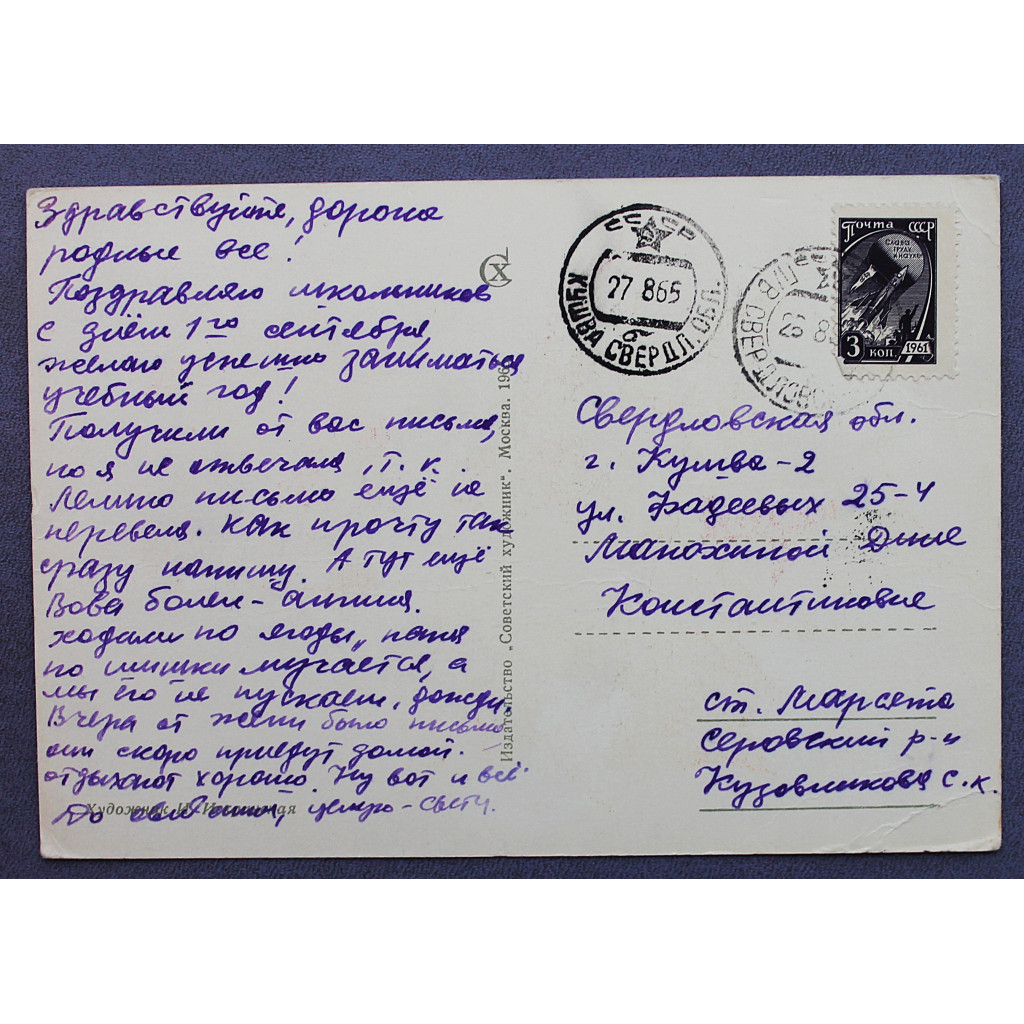 Здравствуйте, дорогие
родные все!
Поздравляю школьников
с днём 1го сентября,
желаю успешно заниматься
учебный год!
Получили от вас письма,
но я не отвечала, т. к.
письмо ещё не
перевела. Как прочту так
сразу напишу. А тут ещё
Вова болен - ангина.
ходили по ягоды, папа
по шишки мучается, а
мы его не пускаем, дожди.
Вчера от жени было письмо
они скоро приедут домой.
отдыхают хорошо. Ну вот и всё
До свидания, целую - Света.
Художник И.
Издательство „Советский художник". Москва. 196
СХ
СССР
27 8 65
б
КУШВА СВЕРДЛ. ОБЛ.
СВЕРДЛОВ
Почта СССР
Слава
труду
и науке
3 коп 1961
Свердловская обл.
г. Кушва-2
ул. Фадеевых 25-4
Манохиной Дине
Константиновне
ст. Марсята
Серовский р-н
Кудовликова С.К.